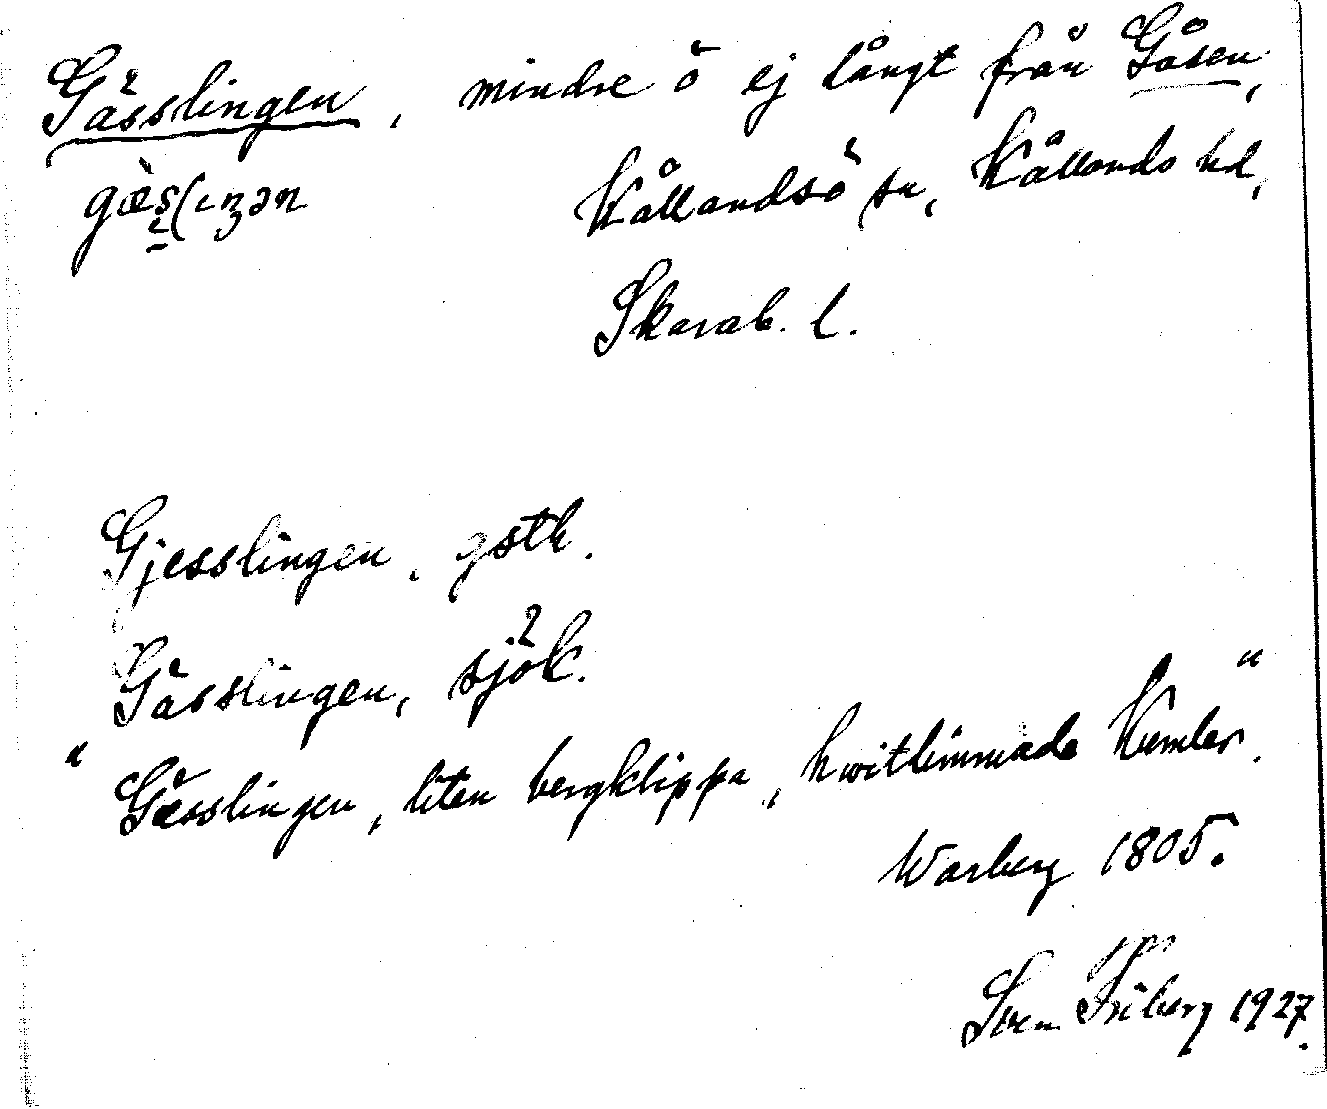 Gässlingen, mindre ö ej långt från Gåsen,
Kållandsö sn, Kållands hd,
Skarab. l.
Gjesslingen, gstk.
Gässlingen, sjök.
"Gæsslingen, liten bergklippa, hwitlimmade Kumler".
Warberg 1805.
Sven Friberg 1927.